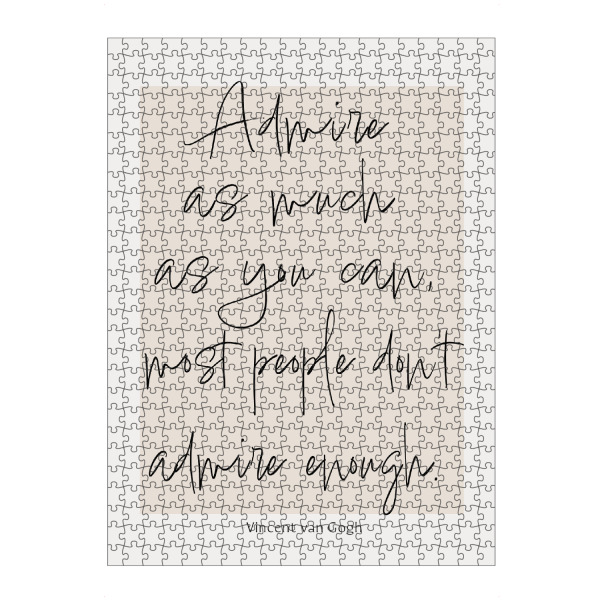 Admire
as much
as you can,
most people don't
admire enough.
Vincent van Gogh